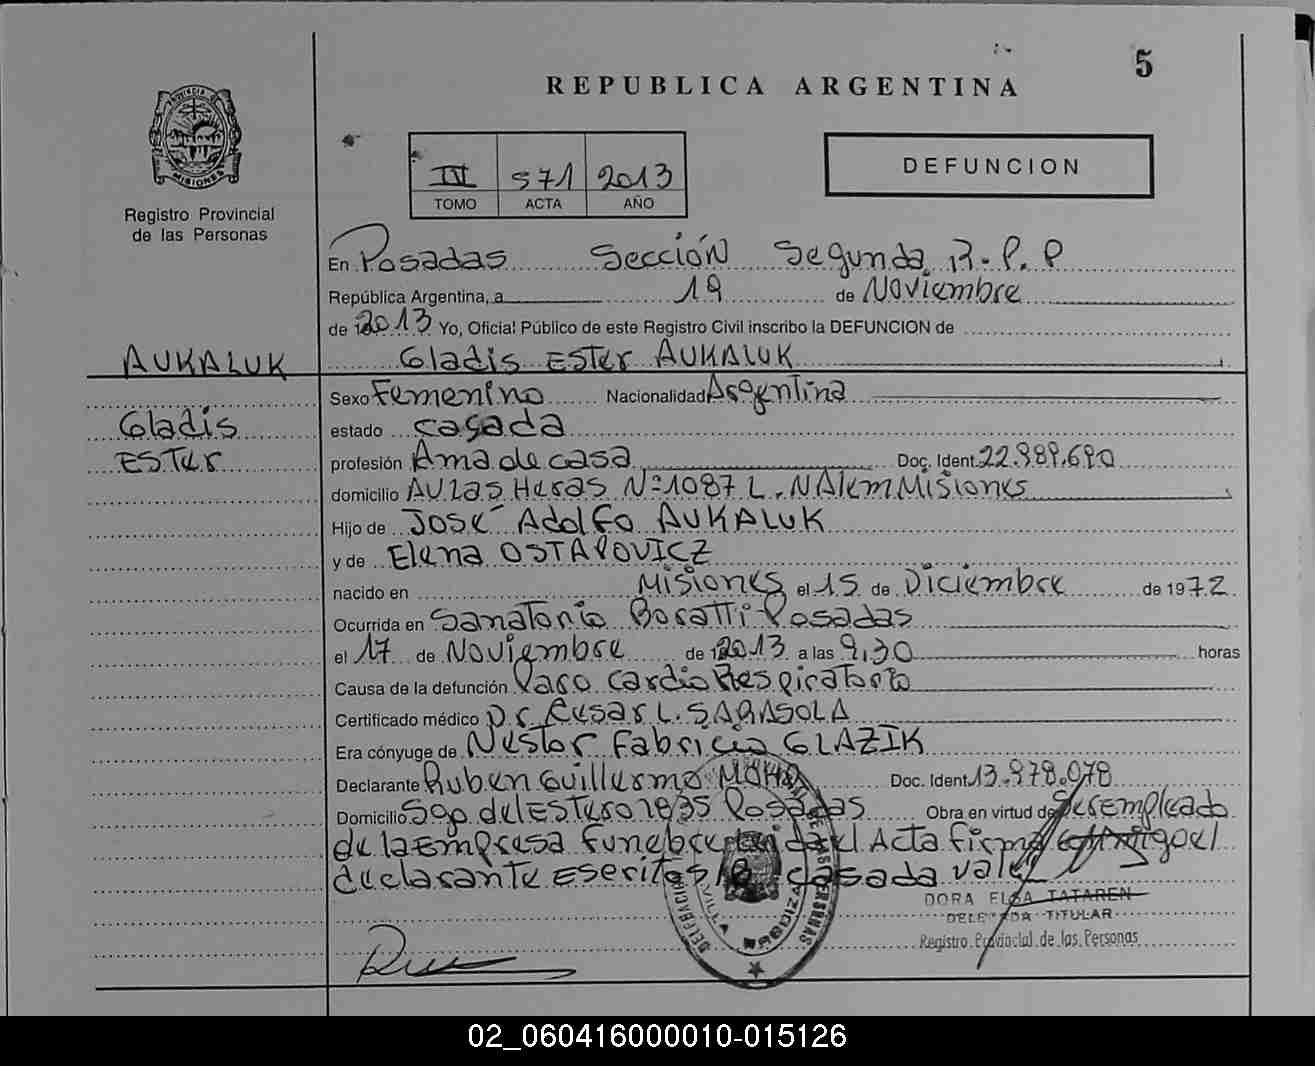 5
REPUBLICA ARGENTINA
PROVINCIA DE
MISIONES
Registro Provincial
de las Personas
III 571 2013
TOMO ACTA AÑO
DEFUNCION
En Posadas Sección Segunda R.P.P
República Argentina, a 19 de Noviembre
de 2013 Yo, Oficial Público de este Registro Civil inscribo la DEFUNCION de
AUKALUK Gladis Ester AUKALUK
Sexo Femenino Nacionalidad Argentina
Gladis estado casada
ESTER profesión Ama de casa Doc. Ident. 22.989.690
domicilio AV. Las Heras Nº 1087 L. N Alem Misiones
Hijo de José Adolfo AUKALUK
y de Elena OSTAPOVICZ
nacido en Misiones el 15 de Diciembre de 1972
Ocurrida en Sanatorio Boratti-Posadas
el 17 de Noviembre de 2013 a las 9,30 horas
Causa de la defunción Paro Cardio Respiratorio
Certificado médico Dr. Cesar L. SARASOLA
Era cónyuge de Nestor Fabricio GLAZIK
Declarante Ruben Guillermo Doc. Ident. 13.978.078
Domicilio Sgo. del Estero 1835 Posadas Obra en virtud de ser empleado
de la Empresa Funebre Leida el Acta firma conmigo el
declarante Eseritos/B casada vale
DORA ELSA TATAREN
DELEGADA TITULAR
Registro Provincial de las Personas
02_060416000010-015126